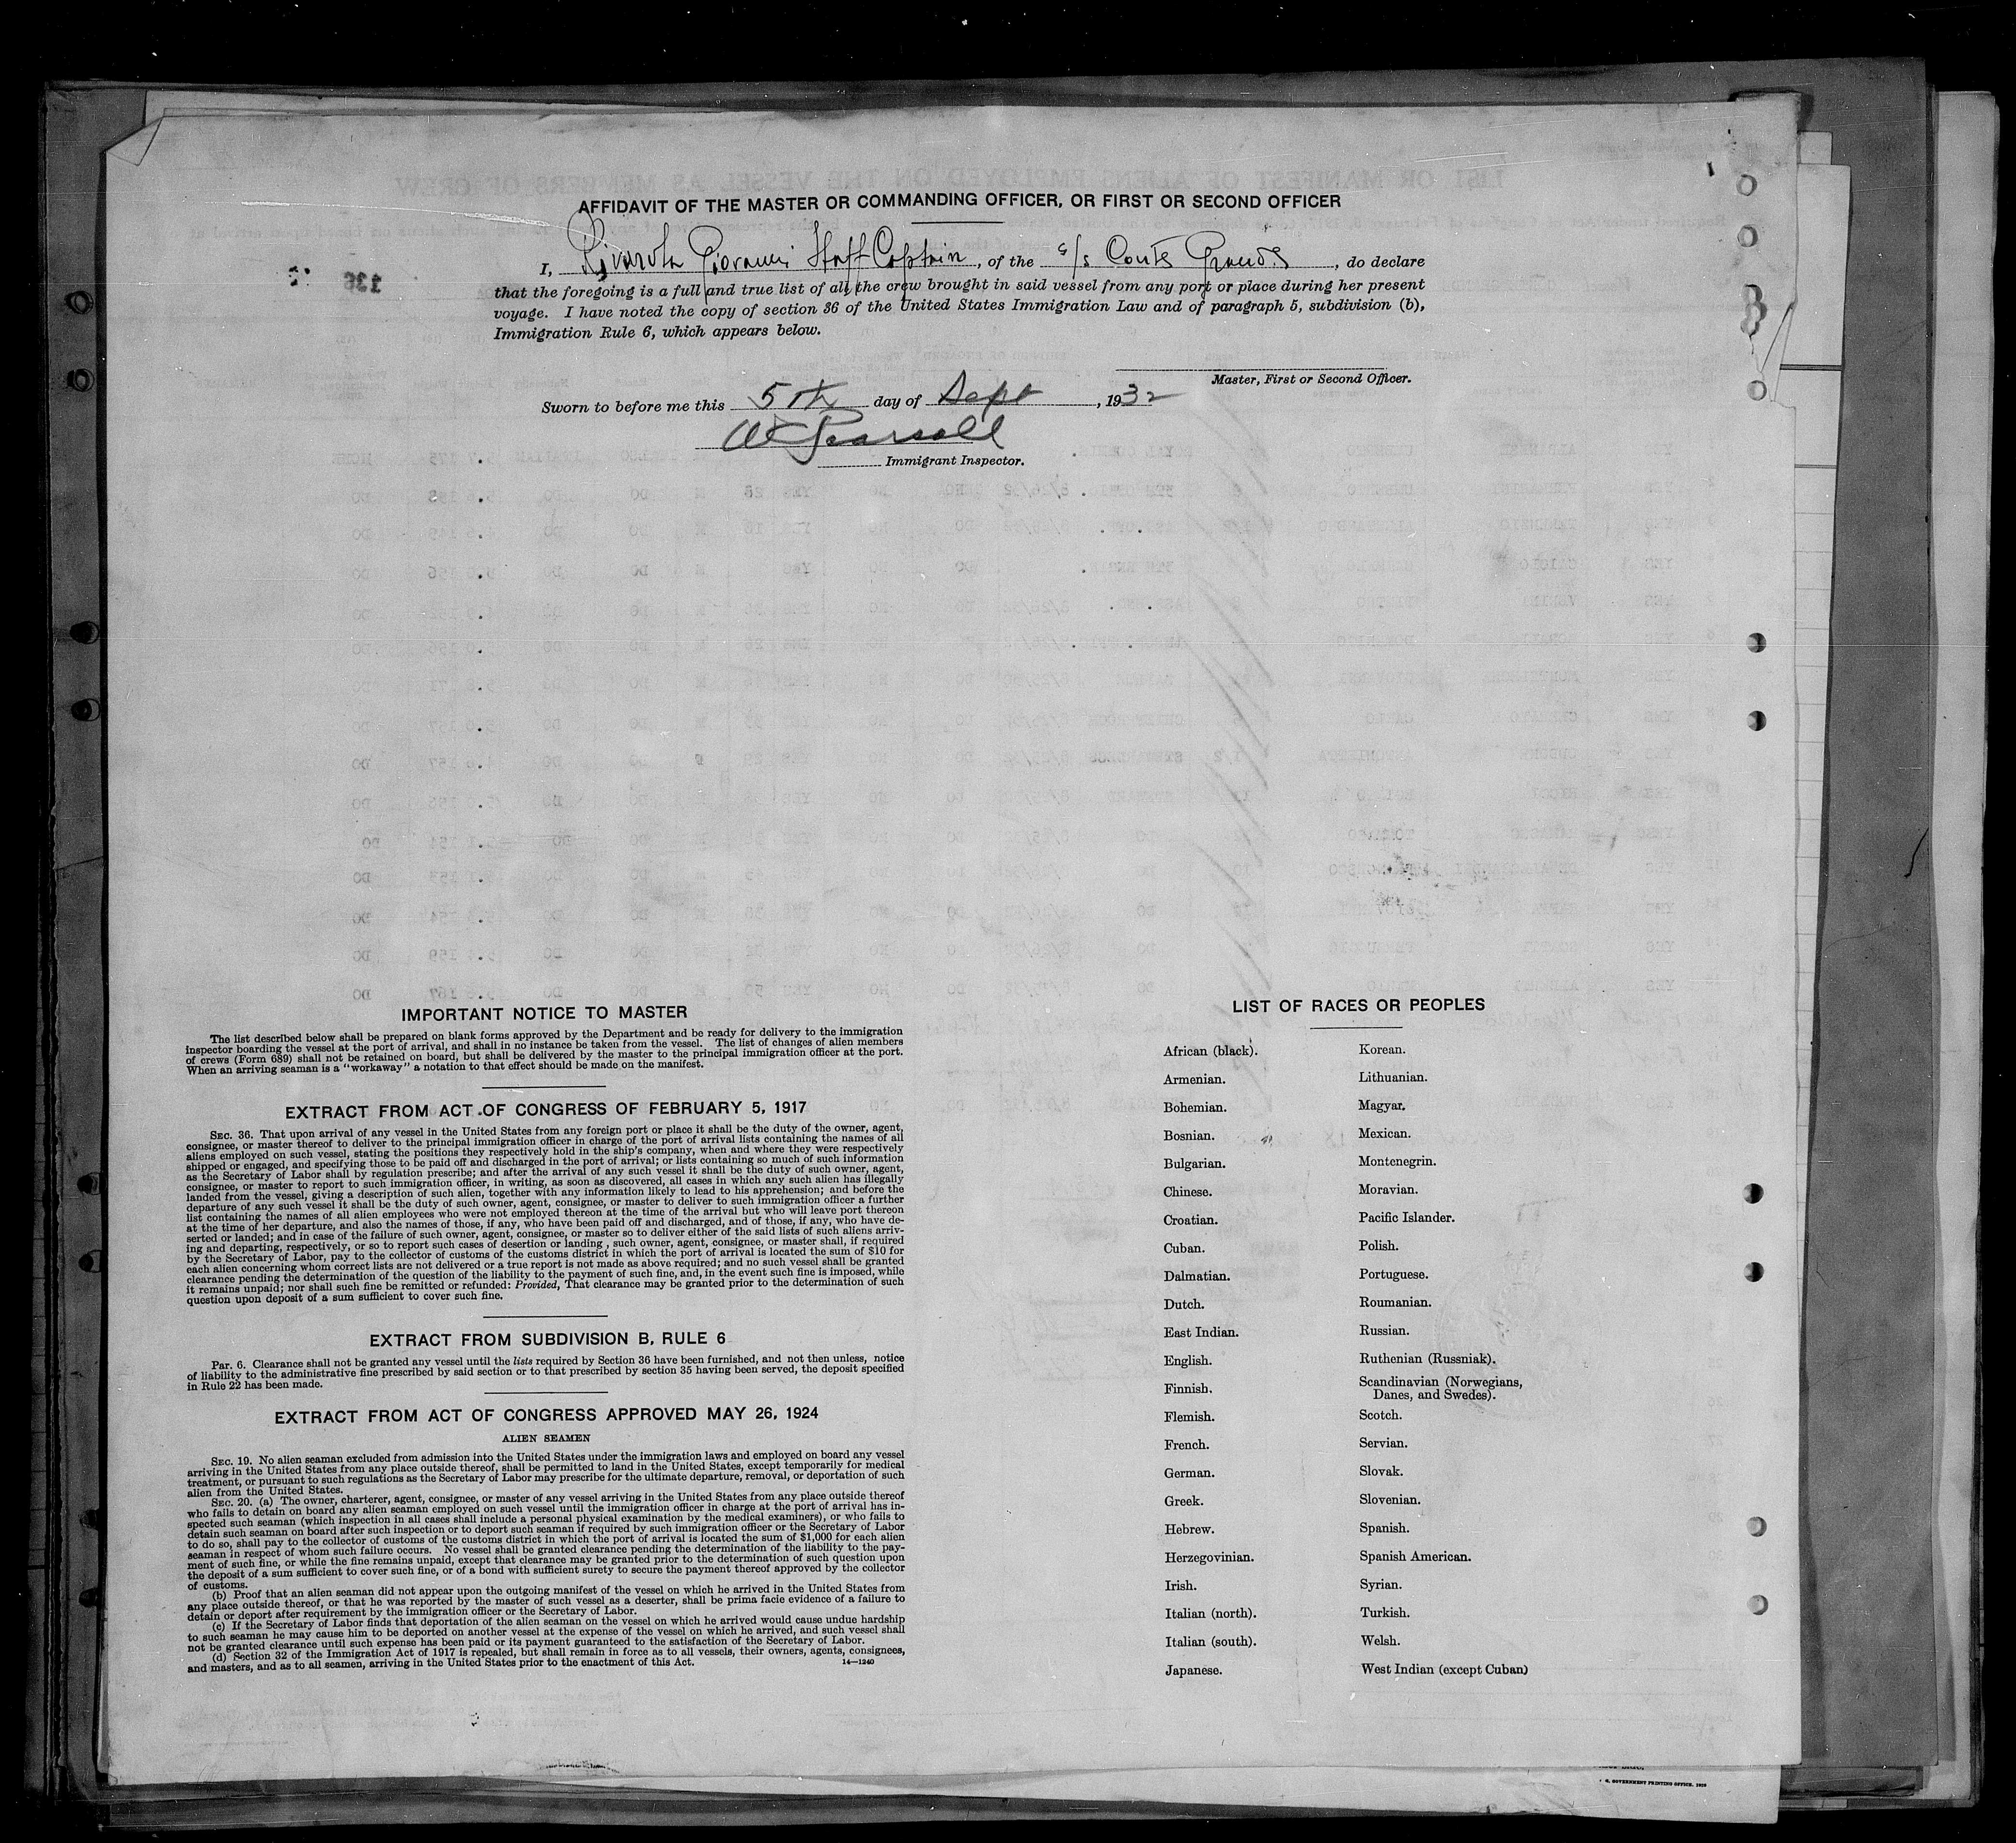 AFFIDAVIT OF THE MASTER OR COMMANDING OFFICER, OR FIRST OR SECOND OFFICER
I, Giovanni Staff Captain, of the s/s Conte Grande, do declare
that the foregoing is a full and true list of all the crew brought in said vessel from any port or place during her present
voyage. I have noted the copy of section 36 of the United States Immigration Law and of paragraph 5, subdivision (b),
Immigration Rule 6, which appears below.
Master, First or Second Officer.
Sworn to before me this 5th day of Sept, 1932
Pearsall
Immigrant Inspector.
136
IMPORTANT NOTICE TO MASTER
The list described below shall be prepared on blank forms approved by the Department and be ready for delivery to the immigration
inspector boarding the vessel at the port of arrival, and shall in no instance be taken from the vessel. The list of changes of alien members
of crews (Form 689) shall not be retained on board, but shall be delivered by the master to the principal immigration officer at the port.
When an arriving seaman is a "workaway" a notation to that effect should be made on the manifest.
EXTRACT FROM ACT OF CONGRESS OF FEBRUARY 5, 1917
SEC. 36. That upon arrival of any vessel in the United States from any foreign port or place it shall be the duty of the owner, agent,
consignee, or master thereof to deliver to the principal immigration officer in charge of the port of arrival lists containing the names of all
aliens employed on such vessel, stating the positions they respectively hold in the ship's company, when and where they were respectively
shipped or engaged, and specifying those to be paid off and discharged in the port of arrival; or lists containing so much of such information
as the Secretary of Labor shall by regulation prescribe; and after the arrival of any such vessel it shall be the duty of such owner, agent,
consignee, or master to report to such immigration officer, in writing, as soon as discovered, all cases in which any such alien has illegally
landed from the vessel, giving a description of such alien, together with any information likely to lead to his apprehension; and before the
departure of any such vessel it shall be the duty of such owner, agent, consignee, or master to deliver to such immigration officer a further
list containing the names of all alien employees who were not employed thereon at the time of the arrival but who will leave port thereon
at the time of her departure, and also the names of those, if any, who have been paid off and discharged, and of those, if any, who have de-
serted or landed; and in case of the failure of such owner, agent, consignee, or master so to deliver either of the said lists of such aliens arriv-
ing and departing, respectively, or so to report such cases of desertion or landing , such owner, agent, consignee, or master shall, if required
by the Secretary of Labor, pay to the collector of customs of the customs district in which the port of arrival is located the sum of $10 for
each alien concerning whom correct lists are not delivered or a true report is not made as above required; and no such vessel shall be granted
clearance pending the determination of the question of the liability to the payment of such fine, and, in the event such fine is imposed, while
it remains unpaid; nor shall such fine be remitted or refunded: Provided, That clearance may be granted prior to the determination of such
question upon deposit of a sum sufficient to cover such fine.
EXTRACT FROM SUBDIVISION B, RULE 6
Par. 6. Clearance shall not be granted any vessel until the lists required by Section 36 have been furnished, and not then unless, notice
of liability to the administrative fine prescribed by said section or to that prescribed by section 35 having been served, the deposit specified
in Rule 22 has been made.
EXTRACT FROM ACT OF CONGRESS APPROVED MAY 26, 1924
ALIEN SEAMEN
SEC. 19. No alien seaman excluded from admission into the United States under the immigration laws and employed on board any vessel
arriving in the United States from any place outside thereof, shall be permitted to land in the United States, except temporarily for medical
treatment, or pursuant to such regulations as the Secretary of Labor may prescribe for the ultimate departure, removal, or deportation of such
alien from the United States.
SEC. 20. (a) The owner, charterer, agent, consignee, or master of any vessel arriving in the United States from any place outside thereof
who fails to detain on board any alien seaman employed on such vessel until the immigration officer in charge at the port of arrival has in-
spected such seaman (which inspection in all cases shall include a personal physical examination by the medical examiners), or who fails to
detain such seaman on board after such inspection or to deport such seaman if required by such immigration officer or the Secretary of Labor
to do so, shall pay to the collector of customs of the customs district in which the port of arrival is located the sum of $1,000 for each alien
seaman in respect of whom such failure occurs. No vessel shall be granted clearance pending the determination of the liability to the pay-
ment of such fine, or while the fine remains unpaid, except that clearance may be granted prior to the determination of such question upon
the deposit of a sum sufficient to cover such fine, or of a bond with sufficient surety to secure the payment thereof approved by the collector
of customs.
(b) Proof that an alien seaman did not appear upon the outgoing manifest of the vessel on which he arrived in the United States from
any place outside thereof, or that he was reported by the master of such vessel as a deserter, shall be prima facie evidence of a failure to
detain or deport after requirement by the immigration officer or the Secretary of Labor.
(c) If the Secretary of Labor finds that deportation of the alien seaman on the vessel on which he arrived would cause undue hardship
to such seaman he may cause him to be deported on another vessel at the expense of the vessel on which he arrived, and such vessel shall
not be granted clearance until such expense has been paid or its payment guaranteed to the satisfaction of the Secretary of Labor.
(d) Section 32 of the Immigration Act of 1917 is repealed, but shall remain in force as to all vessels, their owners, agents, consignees,
and masters, and as to all seamen, arriving in the United States prior to the enactment of this Act.
14—1240
LIST OF RACES OR PEOPLES
African (black).
Armenian.
Bohemian.
Bosnian.
Bulgarian.
Chinese.
Croatian.
Cuban.
Dalmatian.
Dutch.
East Indian.
English.
Finnish.
Flemish.
French.
German.
Greek.
Hebrew.
Herzegovinian.
Irish.
Italian (north).
Italian (south).
Japanese.
Korean.
Lithuanian.
Magyar.
Mexican.
Montenegrin.
Moravian.
Pacific Islander.
Polish.
Portuguese.
Roumanian.
Russian.
Ruthenian (Russniak).
Scandinavian (Norwegians,
Danes, and Swedes).
Scotch.
Servian.
Slovak.
Slovenian.
Spanish.
Spanish American.
Syrian.
Turkish.
Welsh.
West Indian (except Cuban)
GOVERNMENT PRINTING OFFICE